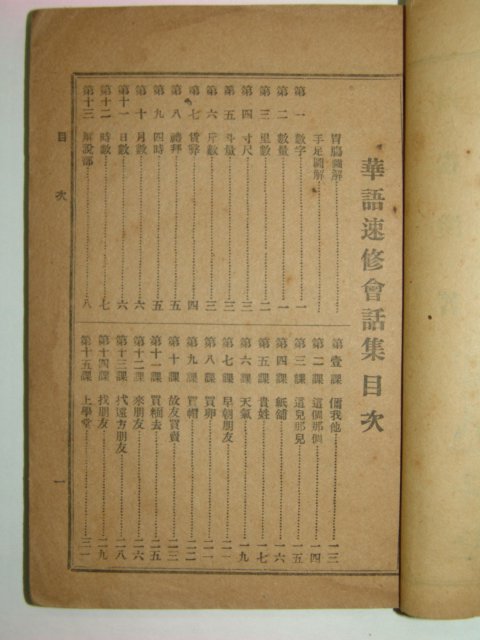 華語速修會話集目次
胃腸圖解
手足圖解
第一 數字 一
第二 數量 一
第三 里數 二
第四 寸尺 三
第五 斗量 三
第六 斤數 三
第七 貨幣 四
第八 禮拜 五
第九 四時 五
第十 月數 六
第十一 日數 六
第十二 時數 七
第十三 解說部 八
第壹課 儞我他 一三
第二課 這個那個 一四
第三課 這兒那兒 一五
第四課 紙舖 一六
第五課 貴姓 一七
第六課 天氣 一九
第七課 早朝朋友 二一
第八課 買卵 二一
第九課 買帽 二二
第十課 故友買賣 二三
第十一課 買桶去 二五
第十二課 來朋友 二六
第十三課 找遠方朋友 二八
第十四課 找朋友 二九
第十五課 上學堂 三一
目次
一